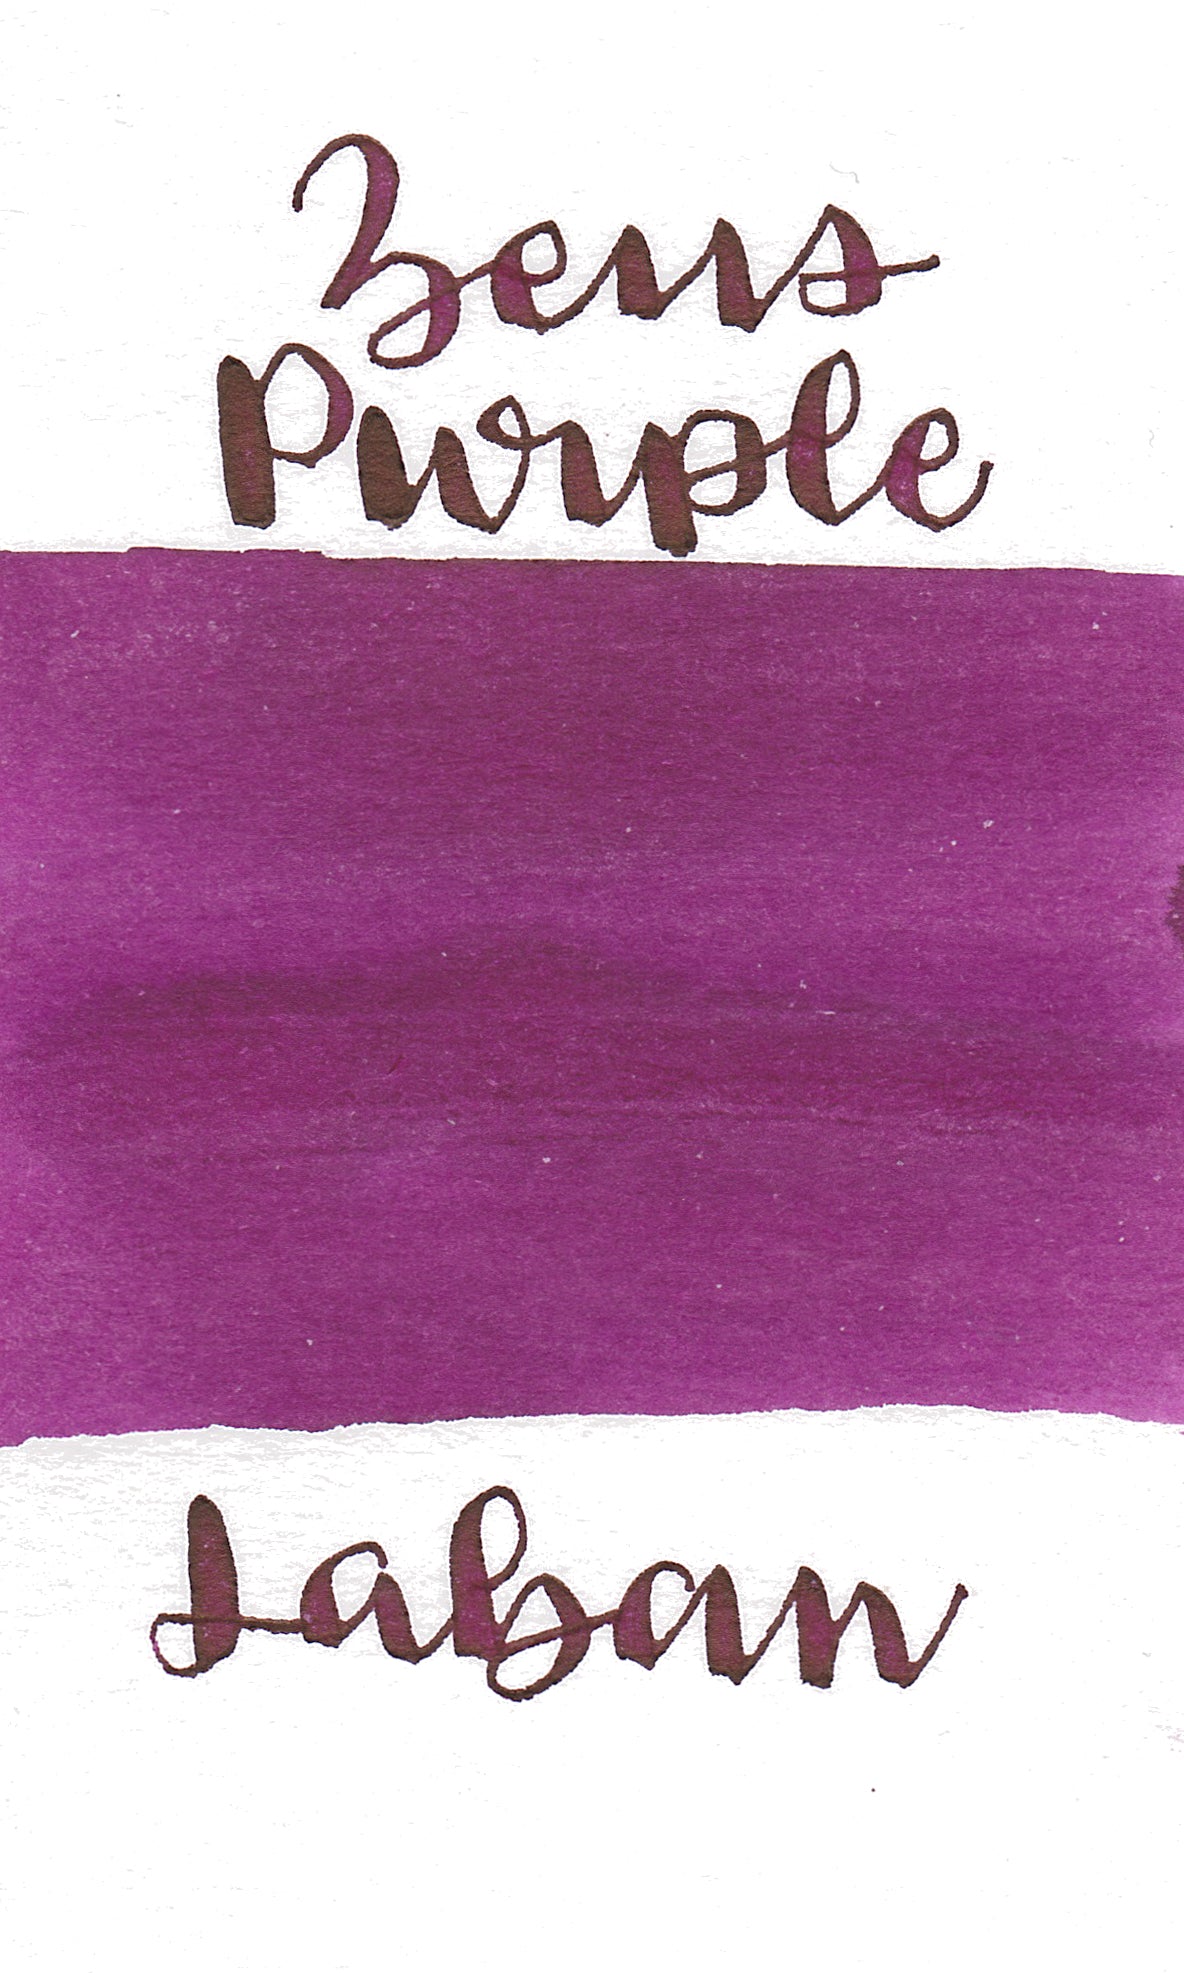 Zeus
Purple
Laban